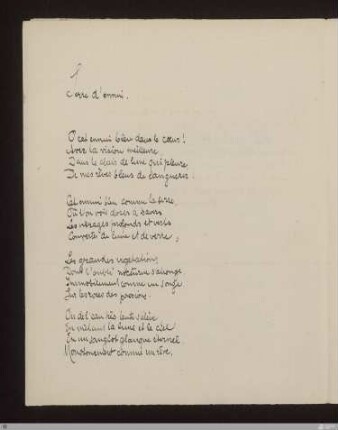 Serre d'ennui.
O cet ennui bleu dans le cœur!
Avec la vision meilleure,
Dans le clair de lune qui pleure,
De mes rêves bleus de langueur.
Cet ennui bleu comme la serre,
Où l'on voit closes à travers
Les vitrages profonds et verts
Couverte de lune et de verre,
Les grandes végétations
Dont l'oubli nocturne s'allonge
Immobilement comme un songe
Sur les roses des passions.
Où de l'eau très lente s'élève
En mêlant la lune et le ciel
En un sanglot glauque éternel
Monotonement comme un rêve.